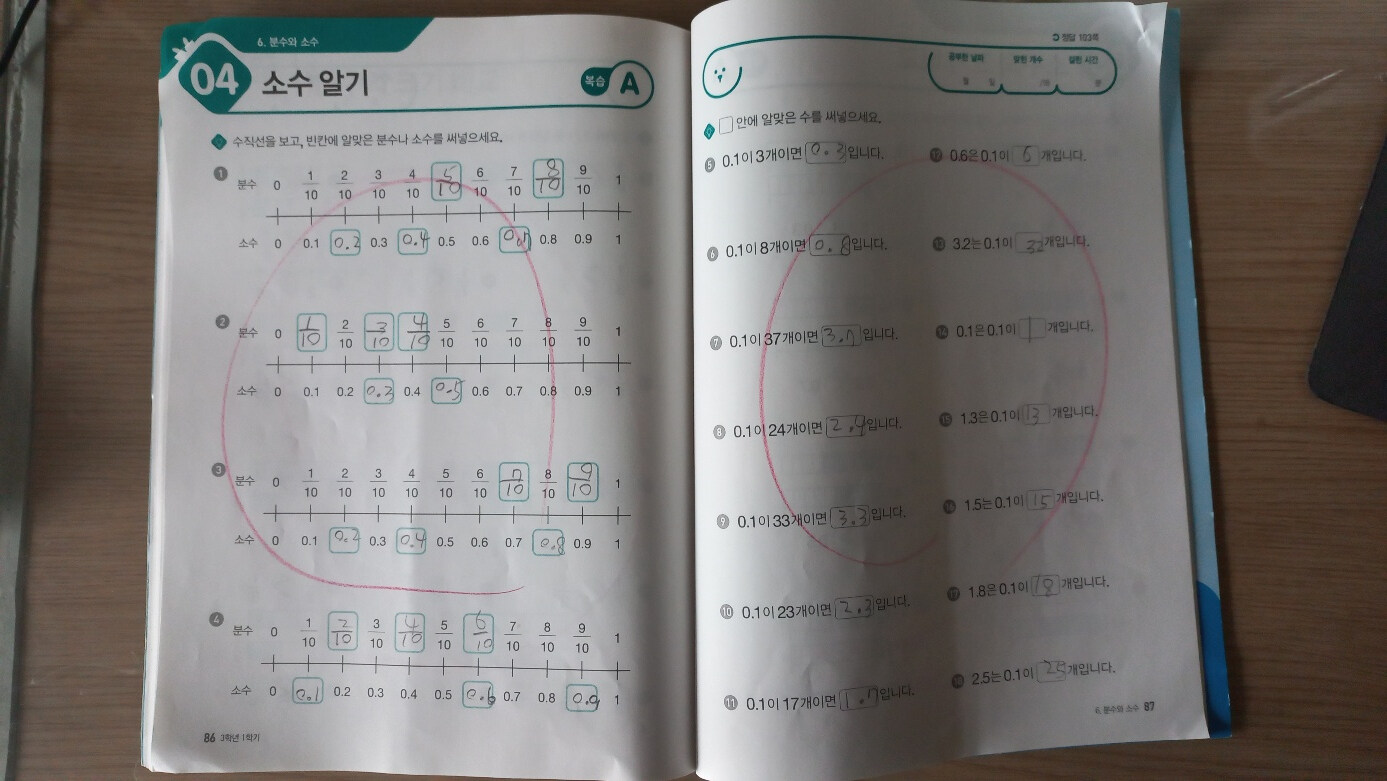 6. 분수와 소수
04 소수 알기 복습 A
수직선을 보고, 빈칸에 알맞은 분수나 소수를 써넣으세요.
1 분수 0 1/10 2/10 3/10 4/10 5/10 6/10 7/10 8/10 9/10 1
소수 0 0.1 0.2 0.3 0.4 0.5 0.6 0.7 0.8 0.9 1
2 분수 0 1/10 2/10 3/10 4/10 5/10 6/10 7/10 8/10 9/10 1
소수 0 0.1 0.2 0.3 0.4 0.5 0.6 0.7 0.8 0.9 1
3 분수 0 1/10 2/10 3/10 4/10 5/10 6/10 7/10 8/10 9/10 1
소수 0 0.1 0.2 0.3 0.4 0.5 0.6 0.7 0.8 0.9 1
4 분수 0 1/10 2/10 3/10 4/10 5/10 6/10 7/10 8/10 9/10 1
소수 0 0.1 0.2 0.3 0.4 0.5 0.6 0.7 0.8 0.9 1
86 3학년 1학기
정답 103쪽
공부한 날짜 맞힌 개수 걸린 시간
월 일 분
안에 알맞은 수를 써넣으세요.
5 0.1이 3개이면 0.3입니다.
6 0.1이 8개이면 0.8입니다.
7 0.1이 37개이면 3.7입니다.
8 0.1이 24개이면 2.4입니다.
9 0.1이 33개이면 3.3입니다.
10 0.1이 23개이면 2.3입니다.
11 0.1이 17개이면 1.7입니다.
12 0.6은 0.1이 6개입니다.
13 3.2는 0.1이 32개입니다.
14 0.1은 0.1이 1개입니다.
15 1.3은 0.1이 13개입니다.
16 1.5는 0.1이 15개입니다.
17 1.8은 0.1이 18개입니다.
18 2.5는 0.1이 25개입니다.
6. 분수와 소수 87